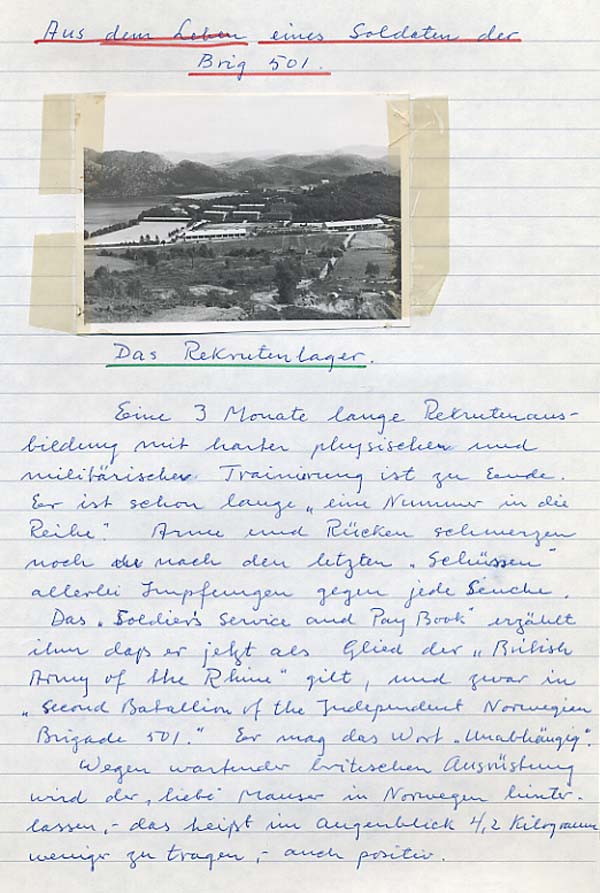 Aus dem Leben eines Soldaten der
Brig 501.
Das Rekrutenlager.
Eine 3 Monate lange Rekrutenaus-
bildung mit harter physischen und
militärischer Trainierung ist zu Eende.
Er ist schon lange „eine Nummer in die
Reihe". Arme und Rücken schmerzen
noch nach den letzten „Schüssen"
allerlei Impfungen gegen jede Seuche.
Das „Soldier's Service and Pay Book" erzählt
ihm daß er jetzt als Glied der „British
Army of the Rhine" gilt, und zwar in
„Second Batallion of the Independent Norwegien
Brigade 501." Er mag das Wort „Unabhängig".
Wegen wartender britischen Ausrüstung
wird der „liebe Mauser in Norwegen hinter-
lassen, - das heißt im Augenblick 4,2 Kilogramm
weniger zu tragen, - auch positiv.